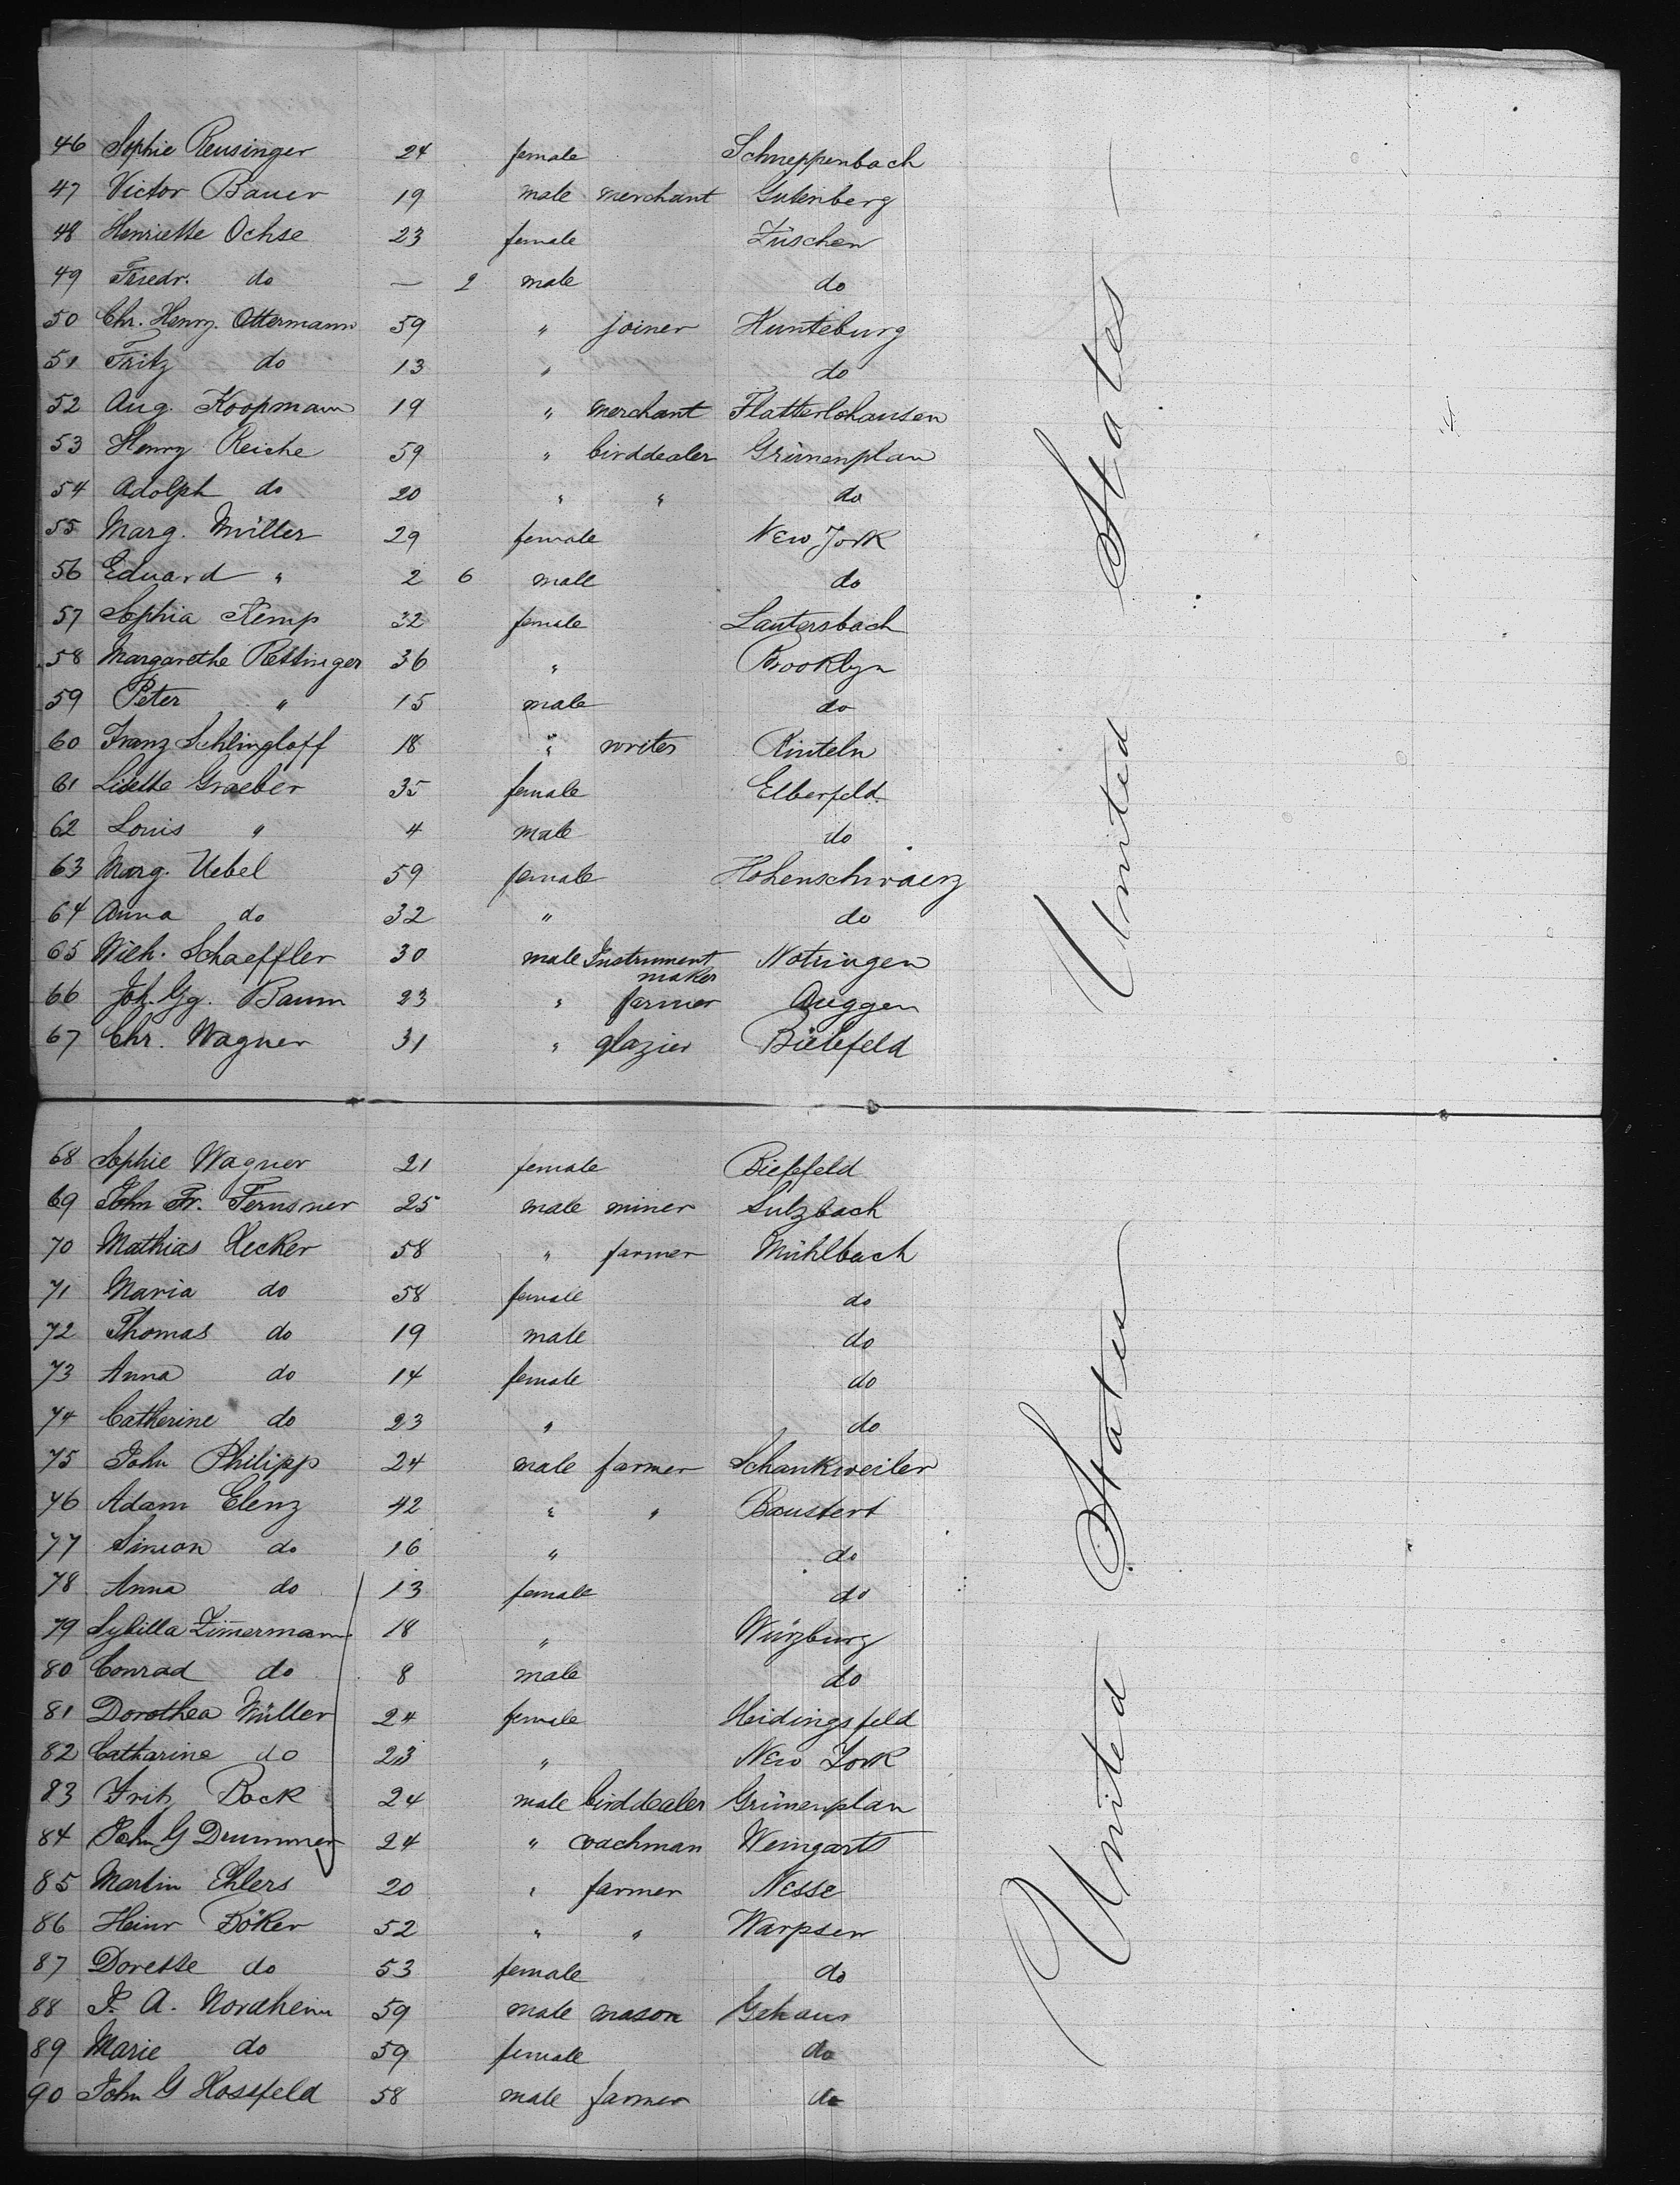 46 Sophie Reusinger 24 female Schneppenbach
47 Victor Bauer 19 male merchant Gutenberg
48 Henriette Ochse 23 female Züschen
49 Friedr. do — 2 male do
50 Chr. Henry. Ottermann 59 " joiner Hunteburg
51 Fritz do 13 " do
52 Aug. Koopmann 19 " merchant Flatterlohausen
53 Henry Reiche 59 " birddealer Grünenplan
54 Adolph do 20 " " do
55 Marg. Müller 29 female New York
56 Eduard " 2 6 male do
57 Sophia Kemp 32 female Lautersbach
58 Margarethe Rettinger 36 " Brooklyn
59 Peter " 15 male do
60 Franz Schlingloff 18 " writer Rinteln
61 Lisette Graeber 35 female Elberfeld
62 Louis " 4 male do
63 Marg. Uebel 59 female Hohenschwaerz
64 Anna do 32 " do
65 Wilh. Schaeffler 30 male Instrument maker Notzingen
66 Joh. Gg. Baum 23 " farmer Auggen
67 Chr. Wagner 31 " glazier Bielefeld
United States
68 Sophie Wagner 21 female Bielefeld
69 John Fr. Fernsner 25 male miner Sulzbach
70 Mathias Hecker 58 " farmer Mühlbach
71 Maria do 58 female do
72 Thomas do 19 male do
73 Anna do 14 female do
74 Catherine do 23 " do
75 John Philipp 24 male farmer Schankweiler
76 Adam Elenz 42 " " Baustert
77 Simon do 16 " do
78 Anna do 13 female do
79 Sybilla Zimermann 18 " Würzburg
80 Conrad do 8 male do
81 Dorothea Müller 24 female Heidingsfeld
82 Catharine do 23 " New York
83 Fritz Bock 24 male birddealer Grünenplan
84 John G Drummer 24 " coachman Weingarts
85 Martin Ehlers 20 " farmer Nesse
86 Heinr Böker 52 " " Warpsen
87 Dorette do 53 female do
88 P. A. Nordheim 59 male mason Gehaus
89 Marie do 59 female do
90 John G Hossfeld 58 male farmer do
United States